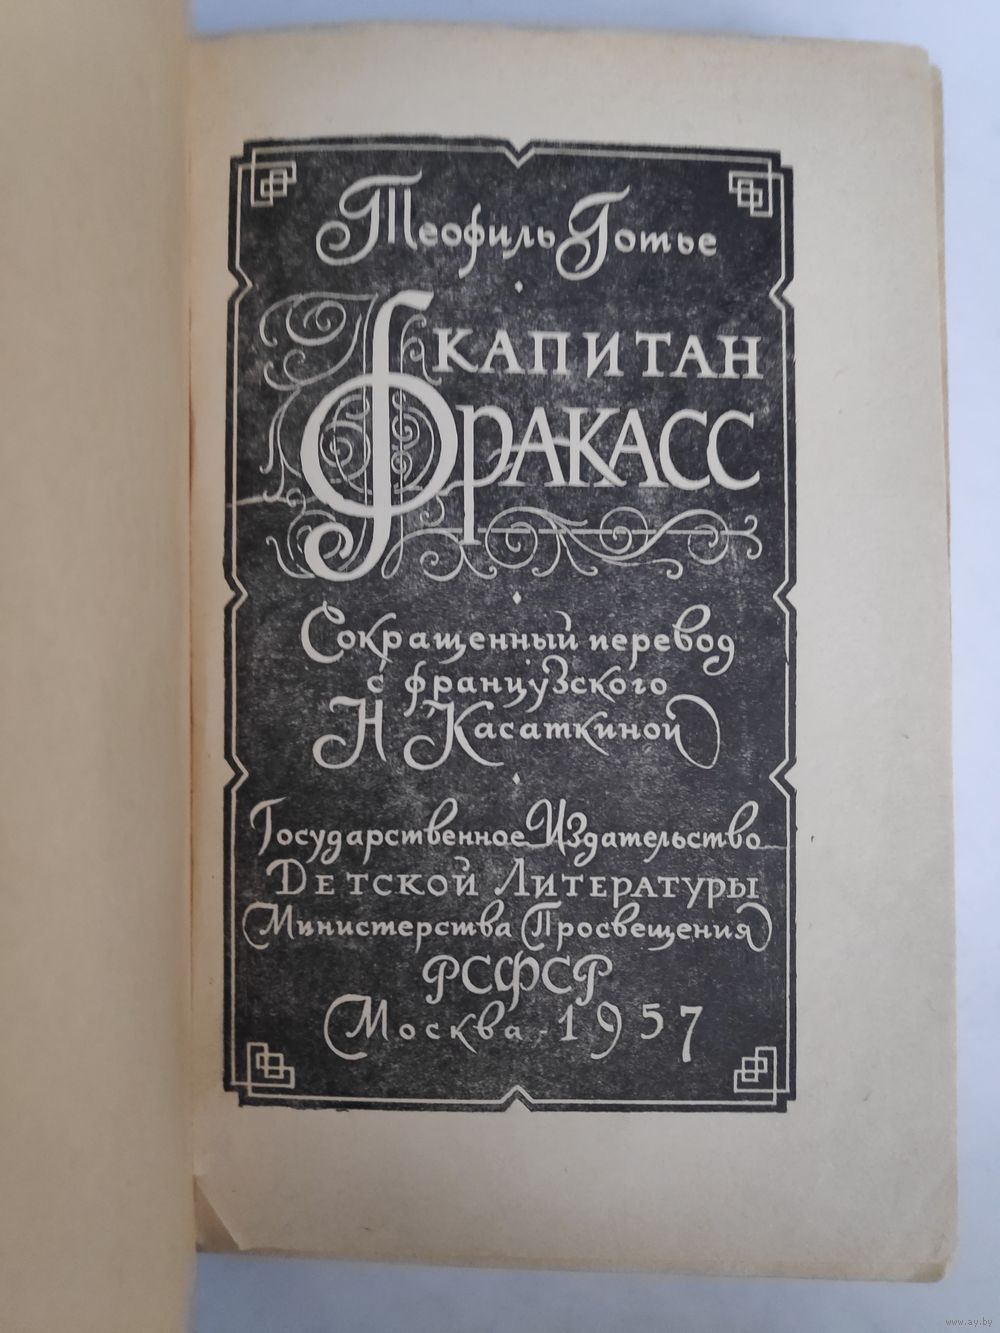 Теофиль Готье
КАПИТАН
ФРАКАСС
Сокращенный перевод
с французского
Н Касаткиной
Государственное Издательство
Детской Литературы
Министерства Просвещения
РСФСР
Москва - 1957
www.ay.by